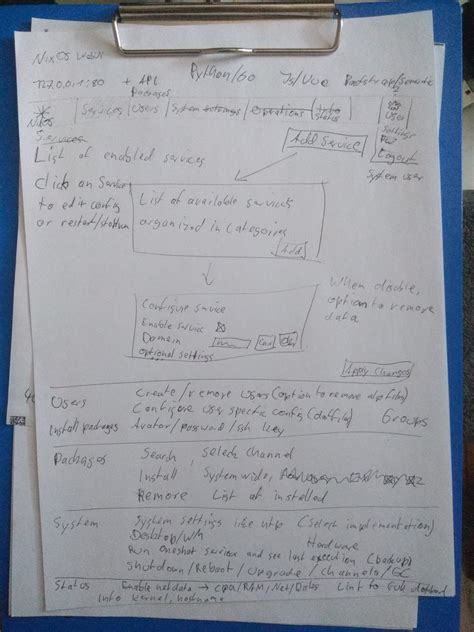 NixOS WebUI
127.0.0.1:80 + API Python/Go Js/Vue Bootstrap/Semantic
Packages
NixOS | Services | Users | System settings | Operations | Info Status
User
Settings
Logout
Services
System user
List of enabled services
Add Service
Click on Service
to edit config
or restart/stop/run
List of available services
organized in categories
Add
When disable,
option to remove
data
Configure service
Enable service
Domain
optional settings
Apply Changes
Users Create/remove users (option to remove also files)
Configure user specific config (dotfiles) Groups
Install packages Avatar/password/ssh key
Packages Search, Select channel
Install System wide,
Remove List of installed
System System settings like ntp (select implementation)
Desktop/WM Hardware
Run oneshot services and see last execution (backup)
Shutdown/Reboot/Upgrade/channels/GC
Status Enable netdata → CPU/RAM/Net/Disks Link to full dashboard
Info kernel, hostname